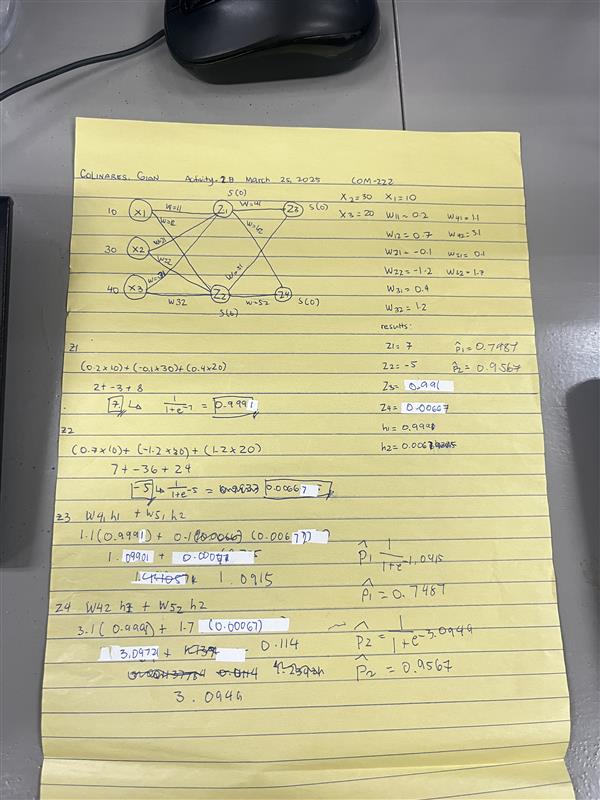 COLINARES, GIAN Activity-2B March 25, 2025 COM-222
S(0)
10 X1 W=11 Z1 W=41 Z3 S(0)
W=12
W=42
W=21
30 X2 W22
W=31
W=51
40 X3 W32 Z2 W=52 Z4 S(0)
S(0)
X2=30 X1=10
X3=20 W11=0.2 W41=1.1
W12=0.7 W42=3.1
W21=-0.1 W51=0.1
W22=-1.2 W52=1.7
W31=0.4
W32=1.2
results:
Z1=7 P̂1=0.7487
Z2=-5 P̂2=0.9567
Z3=0.991
Z4=0.00667
h1=0.9991
h2=
Z1
(0.2x10)+(-0.1x30)+(0.4x20)
2+-3+8
7 ↳ 1/1+e-7 = 0.9991
Z2
(0.7x10)+(-1.2x30)+(1.2x20)
7+-36+24
-5 ↳ 1/1+e-5 = 0.00667
Z3 W41h1 + W51h2
1.1(0.9991)+0.1 (0.00677)
1.09901 +
1.0915
P̂1 1/1+e-1.0915
P̂1=0.7487
Z4 W42 h1 + W52 h2
3.1(0.9991)+1.7 (0.00067)
3.0972 0.114
3.0949
~ P̂2=1/1+e-3.0949
P̂2=0.9567